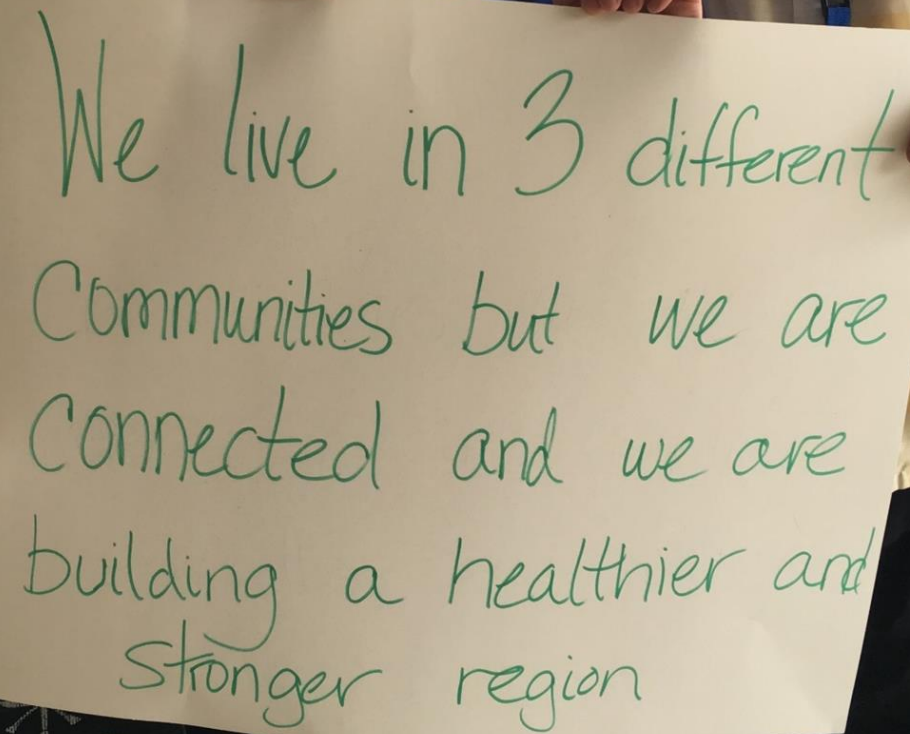 We live in 3 different
Communities but we are
Connected and we are
building a healthier and
Stronger region